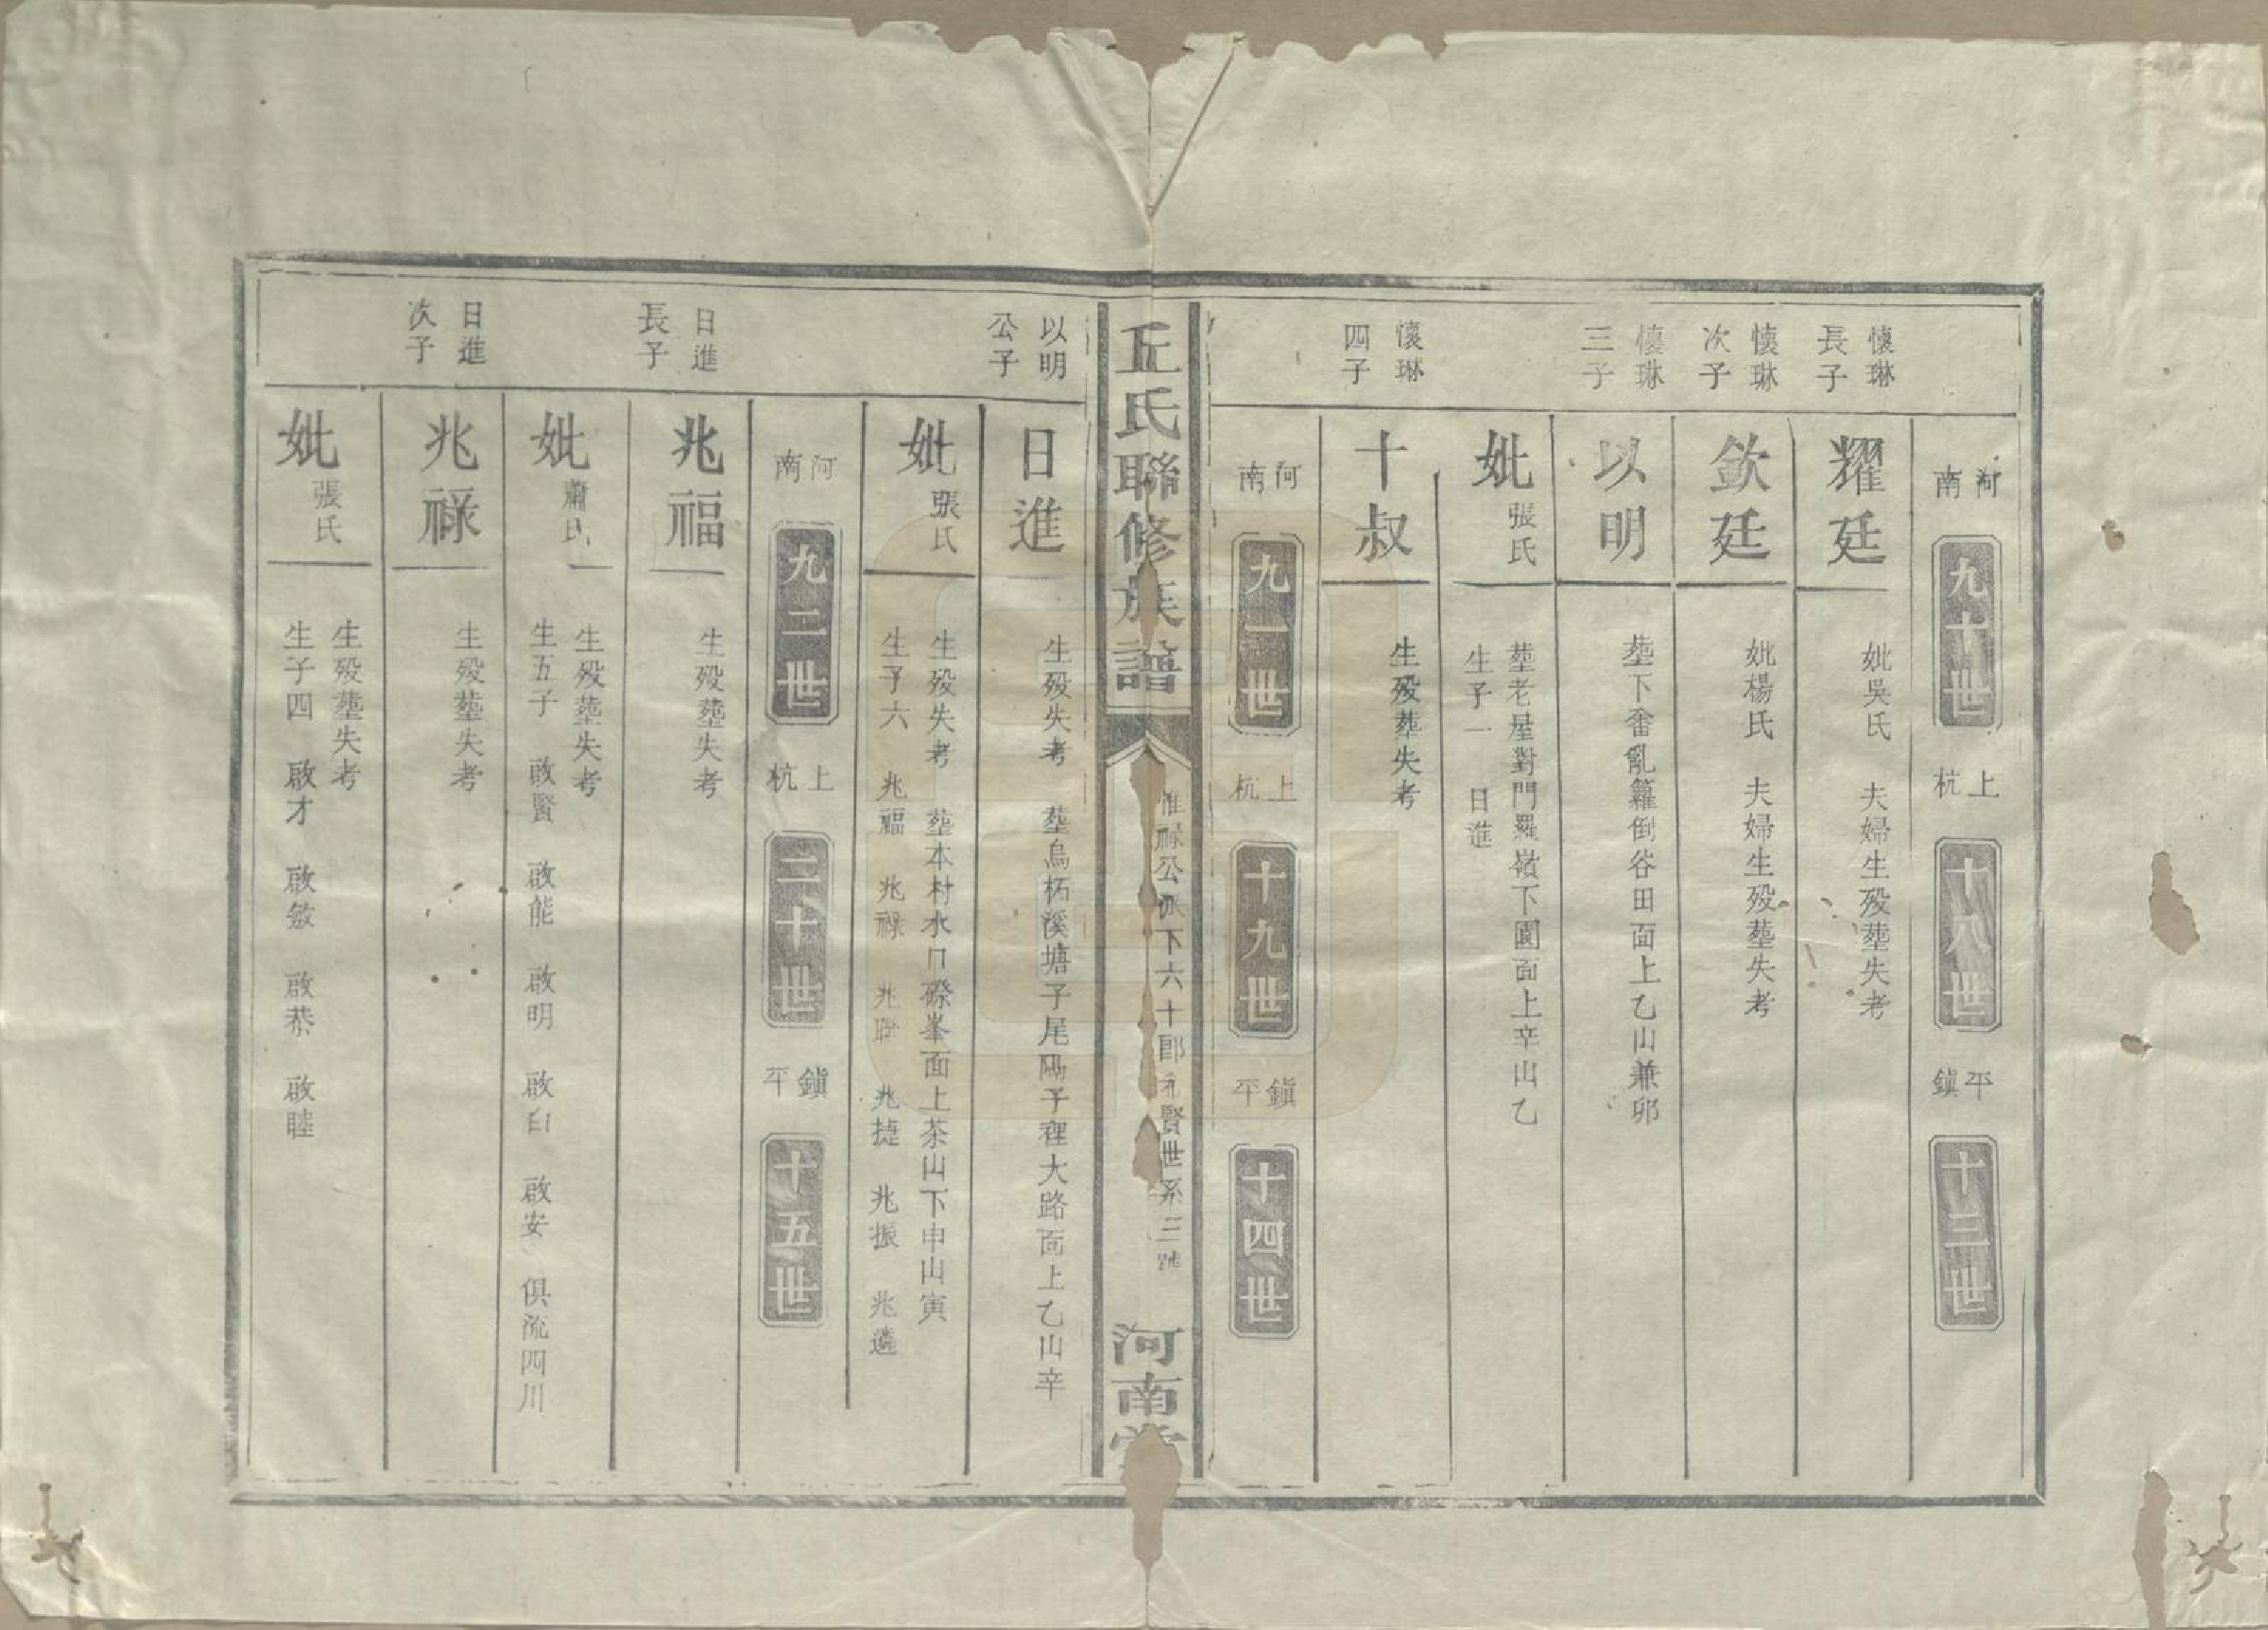 河南
九十世
上杭
十八世
平鎮
十三世
懷琳
長子
耀廷
妣吳氏　夫婦生殁塟失考
懷琳
次子
欽廷
妣楊氏　夫婦生殁塟失考
懷琳
三子
以明
塟下畬亂籮倒谷田面上乙山兼卯
妣張氏
塟老屋對門羅嶺下園面上辛山乙
生子一　日進
懷琳
四子
十叔
生殁葬失考
河南
九一世
上杭
十九世
鎮平
十四世
丘氏聯修族譜
惟祿公派下六十郎　賢世系三
河南堂
以明
公子
日進
生殁失考　塟烏柘溪塘子尾陽子裡大路面上乙山辛
妣張氏
生殁失考　塟本村水口磜峯面上茶山下申山寅
生子六　兆福　兆祿　兆　兆捷　兆振　兆遴
河南
九二世
上杭
二十世
鎮平
十五世
日進
長子
兆福
生殁塟失考
妣蕭氏
生殁塟失考
生五子　啟賢　啟能　啟明　啟白　啟安　俱流四川
日進
次子
兆祿
生殁塟失考
妣張氏
生殁塟失考
生子四　啟才　啟敏　啟恭　啟睦